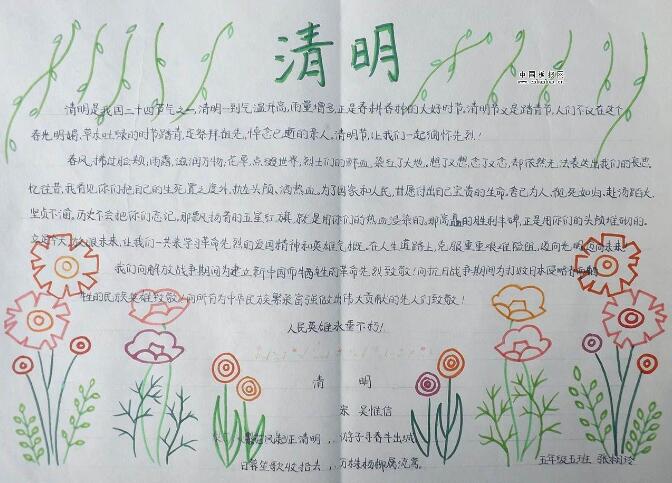 清明
中国素材网
清明是我国二十四节气之一,清明一到气温升高,雨量增多,正是春耕春种的大好时节。清明节又是踏青节,人们不仅在这个
春光明媚、草木吐绿的时节踏青,走祭拜祖先。悼念已逝的亲人。清明节,让我们一起缅怀先烈!
春风,拂过脸颊,雨露,滋润万物,花草,点缀世界,烈士们的鲜血,染红了大地。想了又想,念了又念,却依然无法表达出我们的哀思。
忆往昔,我看见你们把自己的生死置之度外,抛头颅、洒热血。为了国家和人民,甘愿付出自己宝贵的生命。舍己为人,视死如归,赴汤蹈火,
坚贞不渝。历史不会把你们忘记。那飘扬着的五星红旗,就是用你们的热血浸染的,那高矗的胜利丰碑,正是用你们的头颅堆砌的。
立足今天放眼未来,让我们一共来学习革命先烈的爱国精神和英雄气概。在人生道路上,克服重重艰难险阻,迈向光明
我们向解放战争期间为建立新中国而牺牲的革命先烈致敬!向抗日战争期间为打败日本侵略者而牺
牲的民族英雄致敬!向所有为中华民族繁荣富强做出伟大贡献的先人们致敬!
人民英雄永垂不朽!
清 明
宋 吴惟信
风影正清明,游子寻春半出城
日暮笙歌收拾去,万株杨柳属流莺。
五年级五班 张